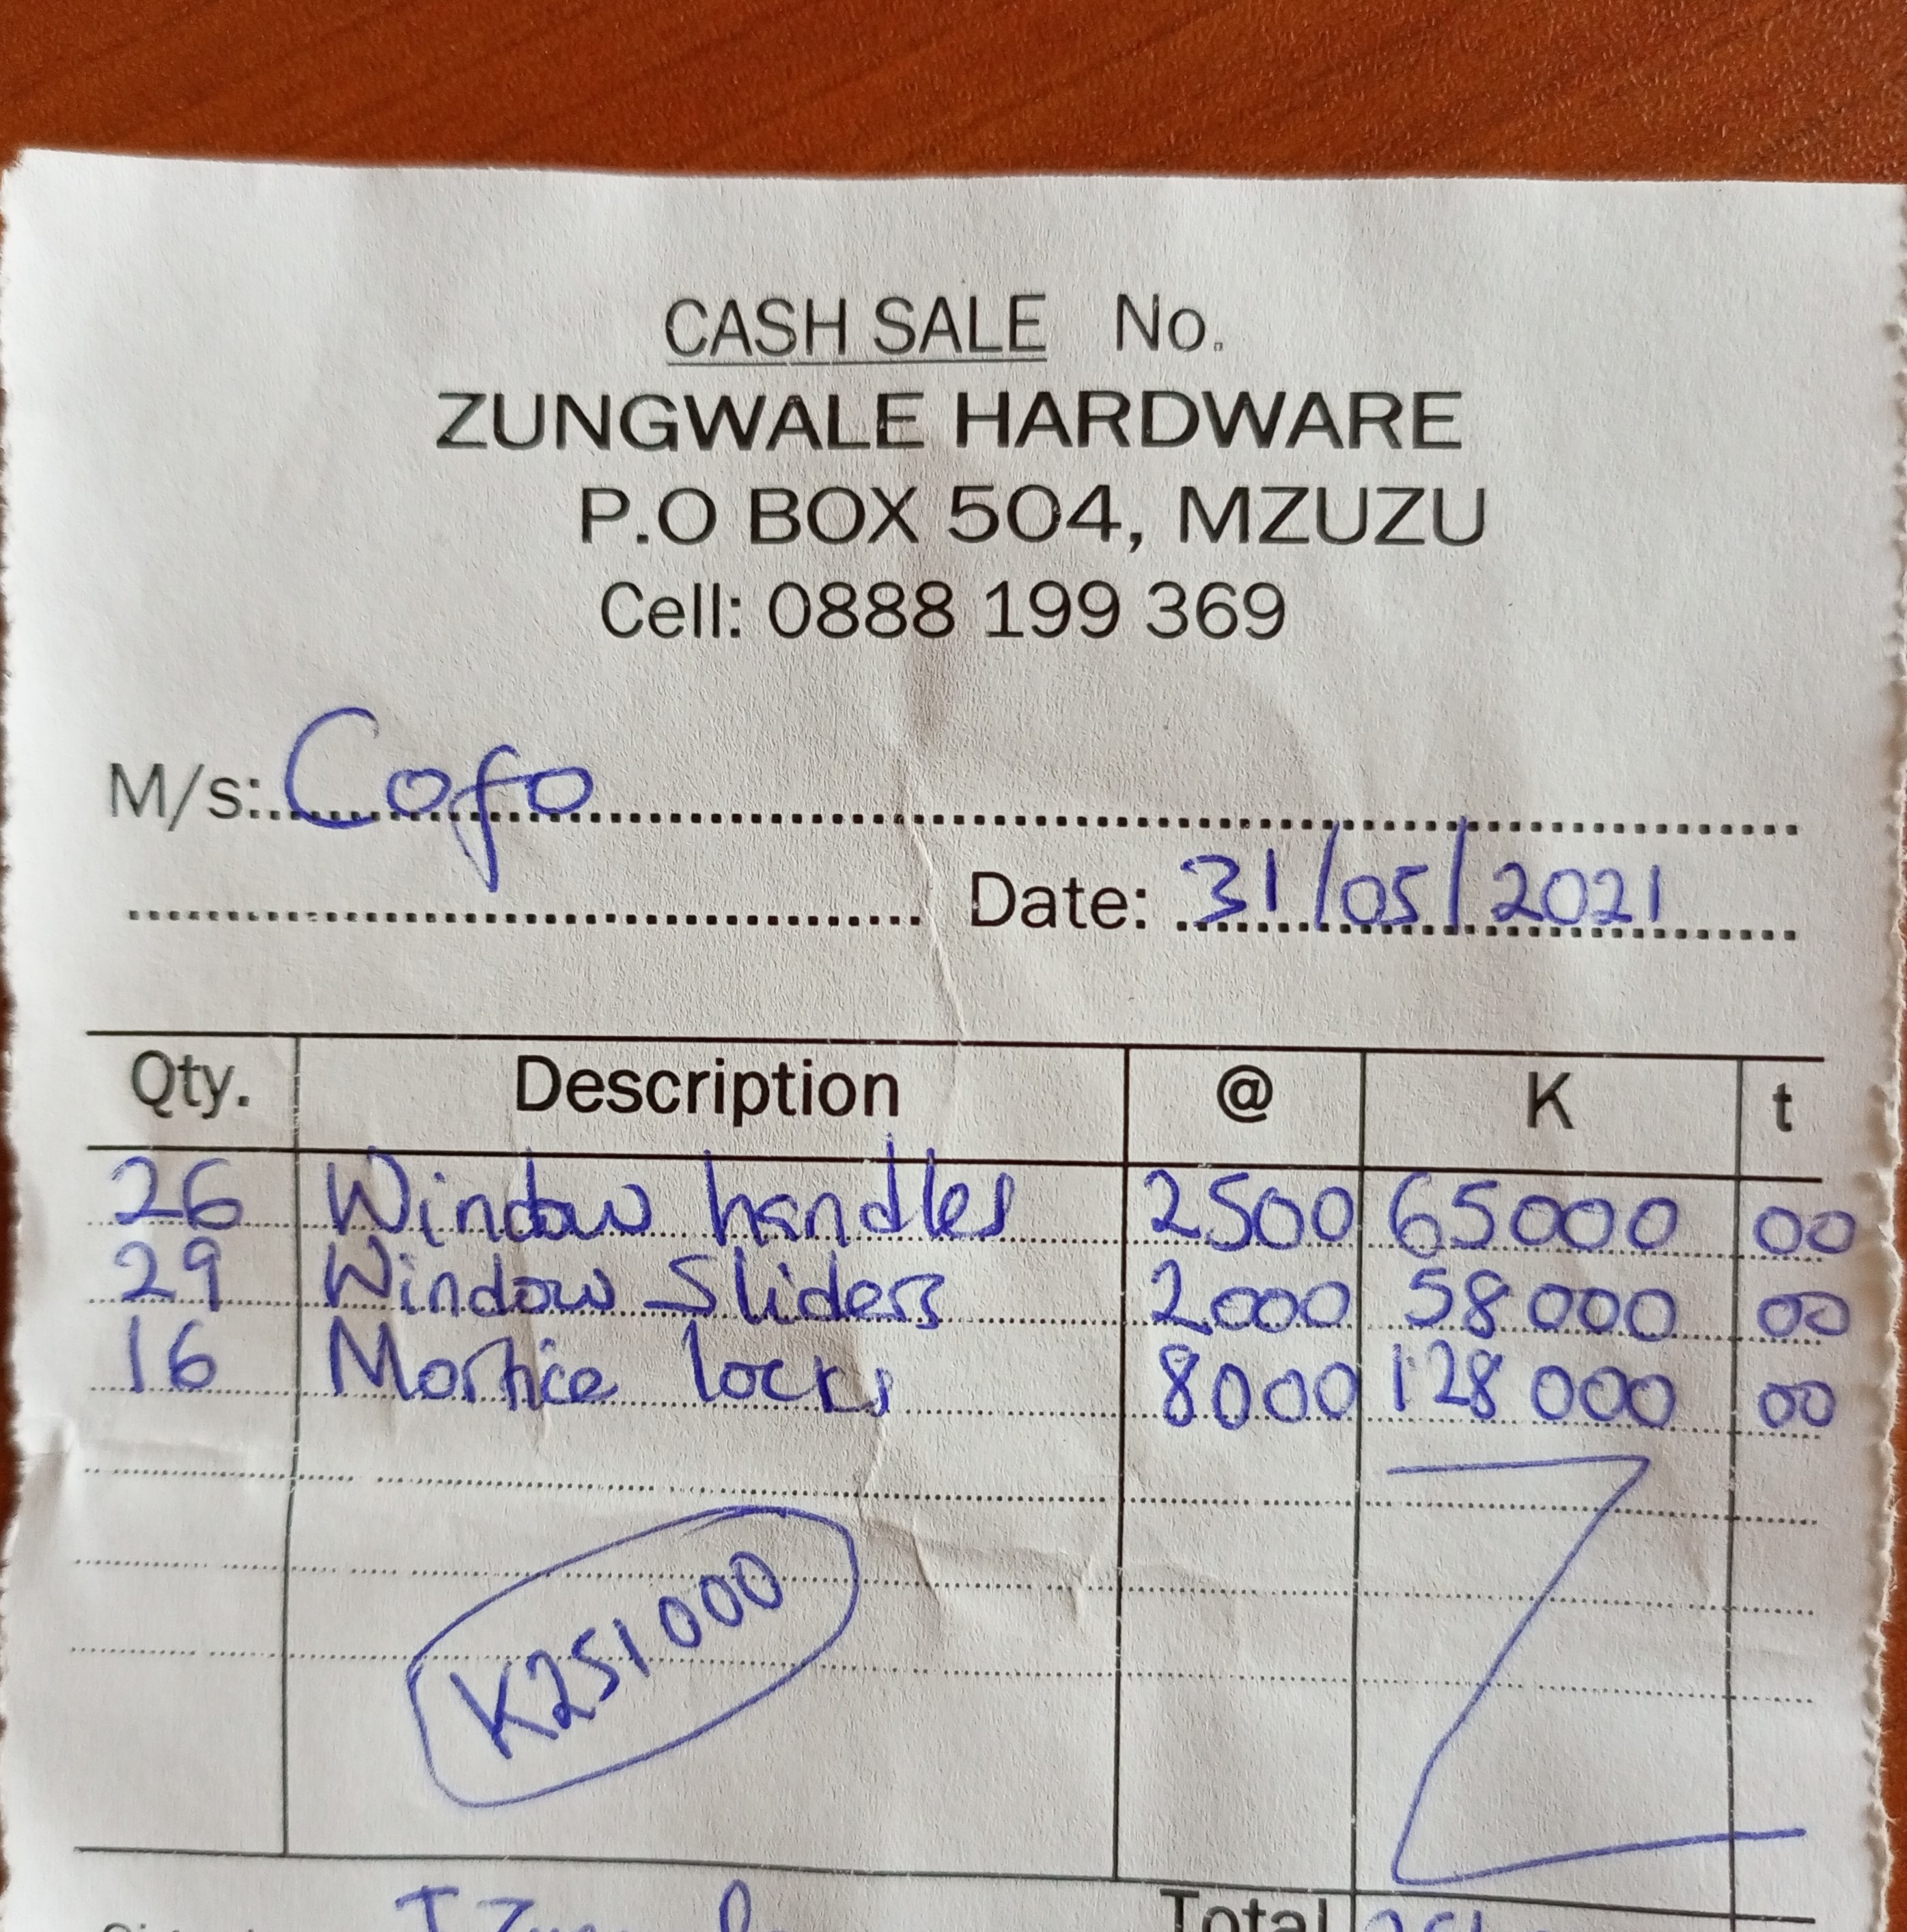 CASH SALE No.
ZUNGWALE HARDWARE
P.O BOX 504, MZUZU
Cell: 0888 199 369
M/s: Cofo
Date: 31/05/2021
Qty. Description @ K t
26 Window handles 2500 65000 00
29 Window Sliders 2000 58000 00
16 Mortice locks 8000 128000 00
K251000
Total